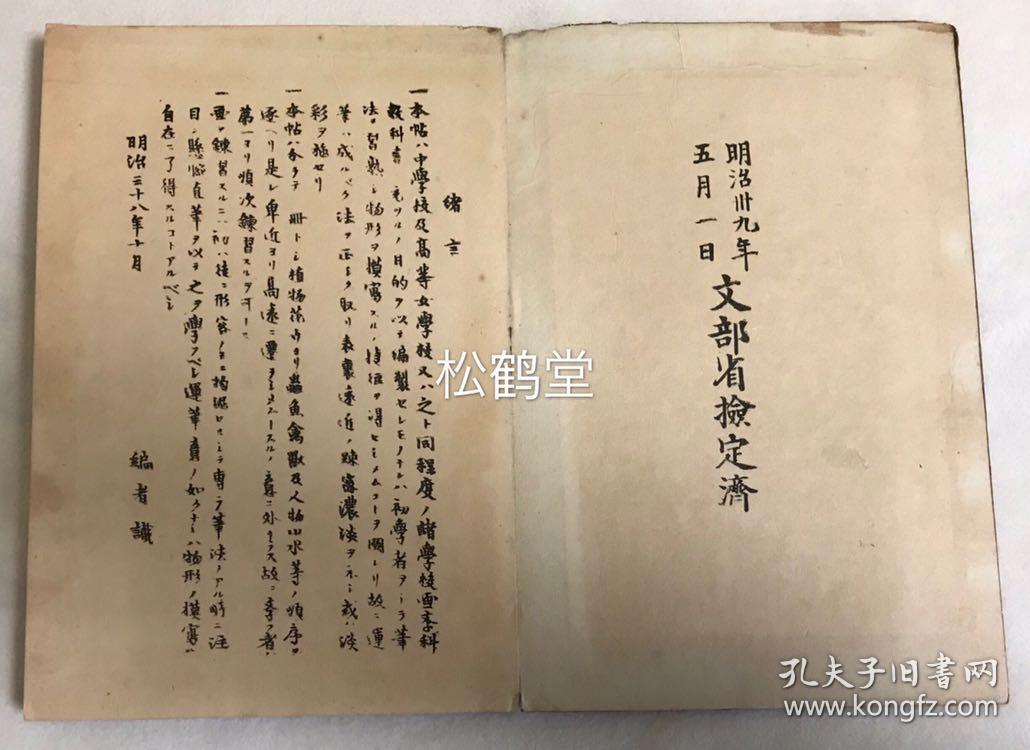 明治卅九年
五月一日
文部省檢定濟
緒言
一本帖ハ中學校及高等女學校又ハ之ト同程度ノ諸學校畫學科
教科書ニ充ツルノ目的ヲ以テ編製セルモノナレハ初學者ヲシテ筆
法ヲ習熟シ物形ヲ摸寫スルノ技術ヲ得セシメムコトヲ期シタリ故ニ運
筆ハ成ルベク法ヲ正シク取リ表裏遠近ノ疎密濃淡ヲ示シ或ハ淡
彩ヲ施セリ
一本帖ハ分テ 冊トシ植物花卉ヨリ蟲魚禽獸及人物山水等ノ順序ヲ
逐ヘリ是レ卑近ヨリ高遠ニ
第一ヨリ順次練習スルヲ
一畫ヲ練習スルニハ初ハ徒ニ形容ノミニ拘泥セスシテ専ラ筆法ノアル所ニ注
目シ懸腕直筆ヲ以テ之ヲ學フベシ運筆意ノ如クナレハ物形ノ摸寫ハ
自在ニ了得スルコトアルベシ
明治三十八年十月
編者識
松鹤堂
孔夫子旧书网
www.kongfz.com